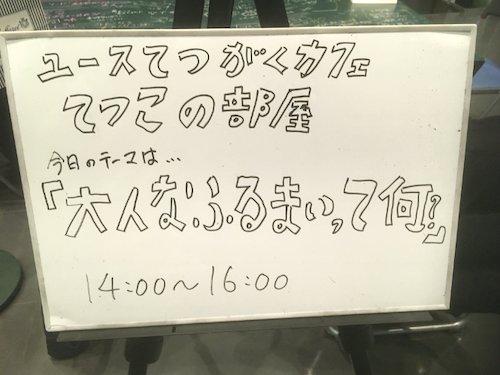 ユースてつがくカフェ
てつこの部屋
今日のテーマは…
「大人なふるまいって何?」
14:00〜16:00